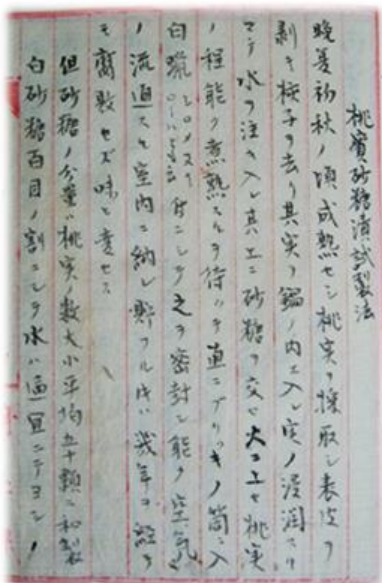 桃實砂糖漬試製法
晩夏初秋ノ頃成熟セシ桃実ヲ採取シ表皮ヲ
剥キ核子ヲ去リ其実ヲ鍋ノ内ニ入レ実ノ浸潤スル
マテ水ヲ注キ入レ其上ニ砂糖ヲ交セ火ニ上セ桃実
ノ程能ク煮熟スルヲ待ツテ直ニブリッキノ筒ニ入
白蝋 付ニシテ之ヲ密封シ能ク空気
ノ流通スル室内ニ納レ貯フル時ハ幾年ヲ経ル
モ腐敗セズ味ヒ変セス
但砂糖ノ分量ハ桃実ノ数大小平均五十顆ニ和製
白砂糖百目ノ割ニシテ水ハ適宜ニテヨシ